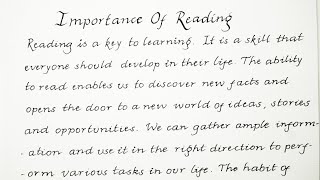 Importance Of Reading
Reading is a key to learning. It is a skill that
everyone should develop in their life. The ability
to read enables us to discover new facts and
opens the door to a new world of ideas, stories
and opportunities. We can gather ample inform-
- ation and use it in the right direction to perf-
orm various tasks in our life. The habit of